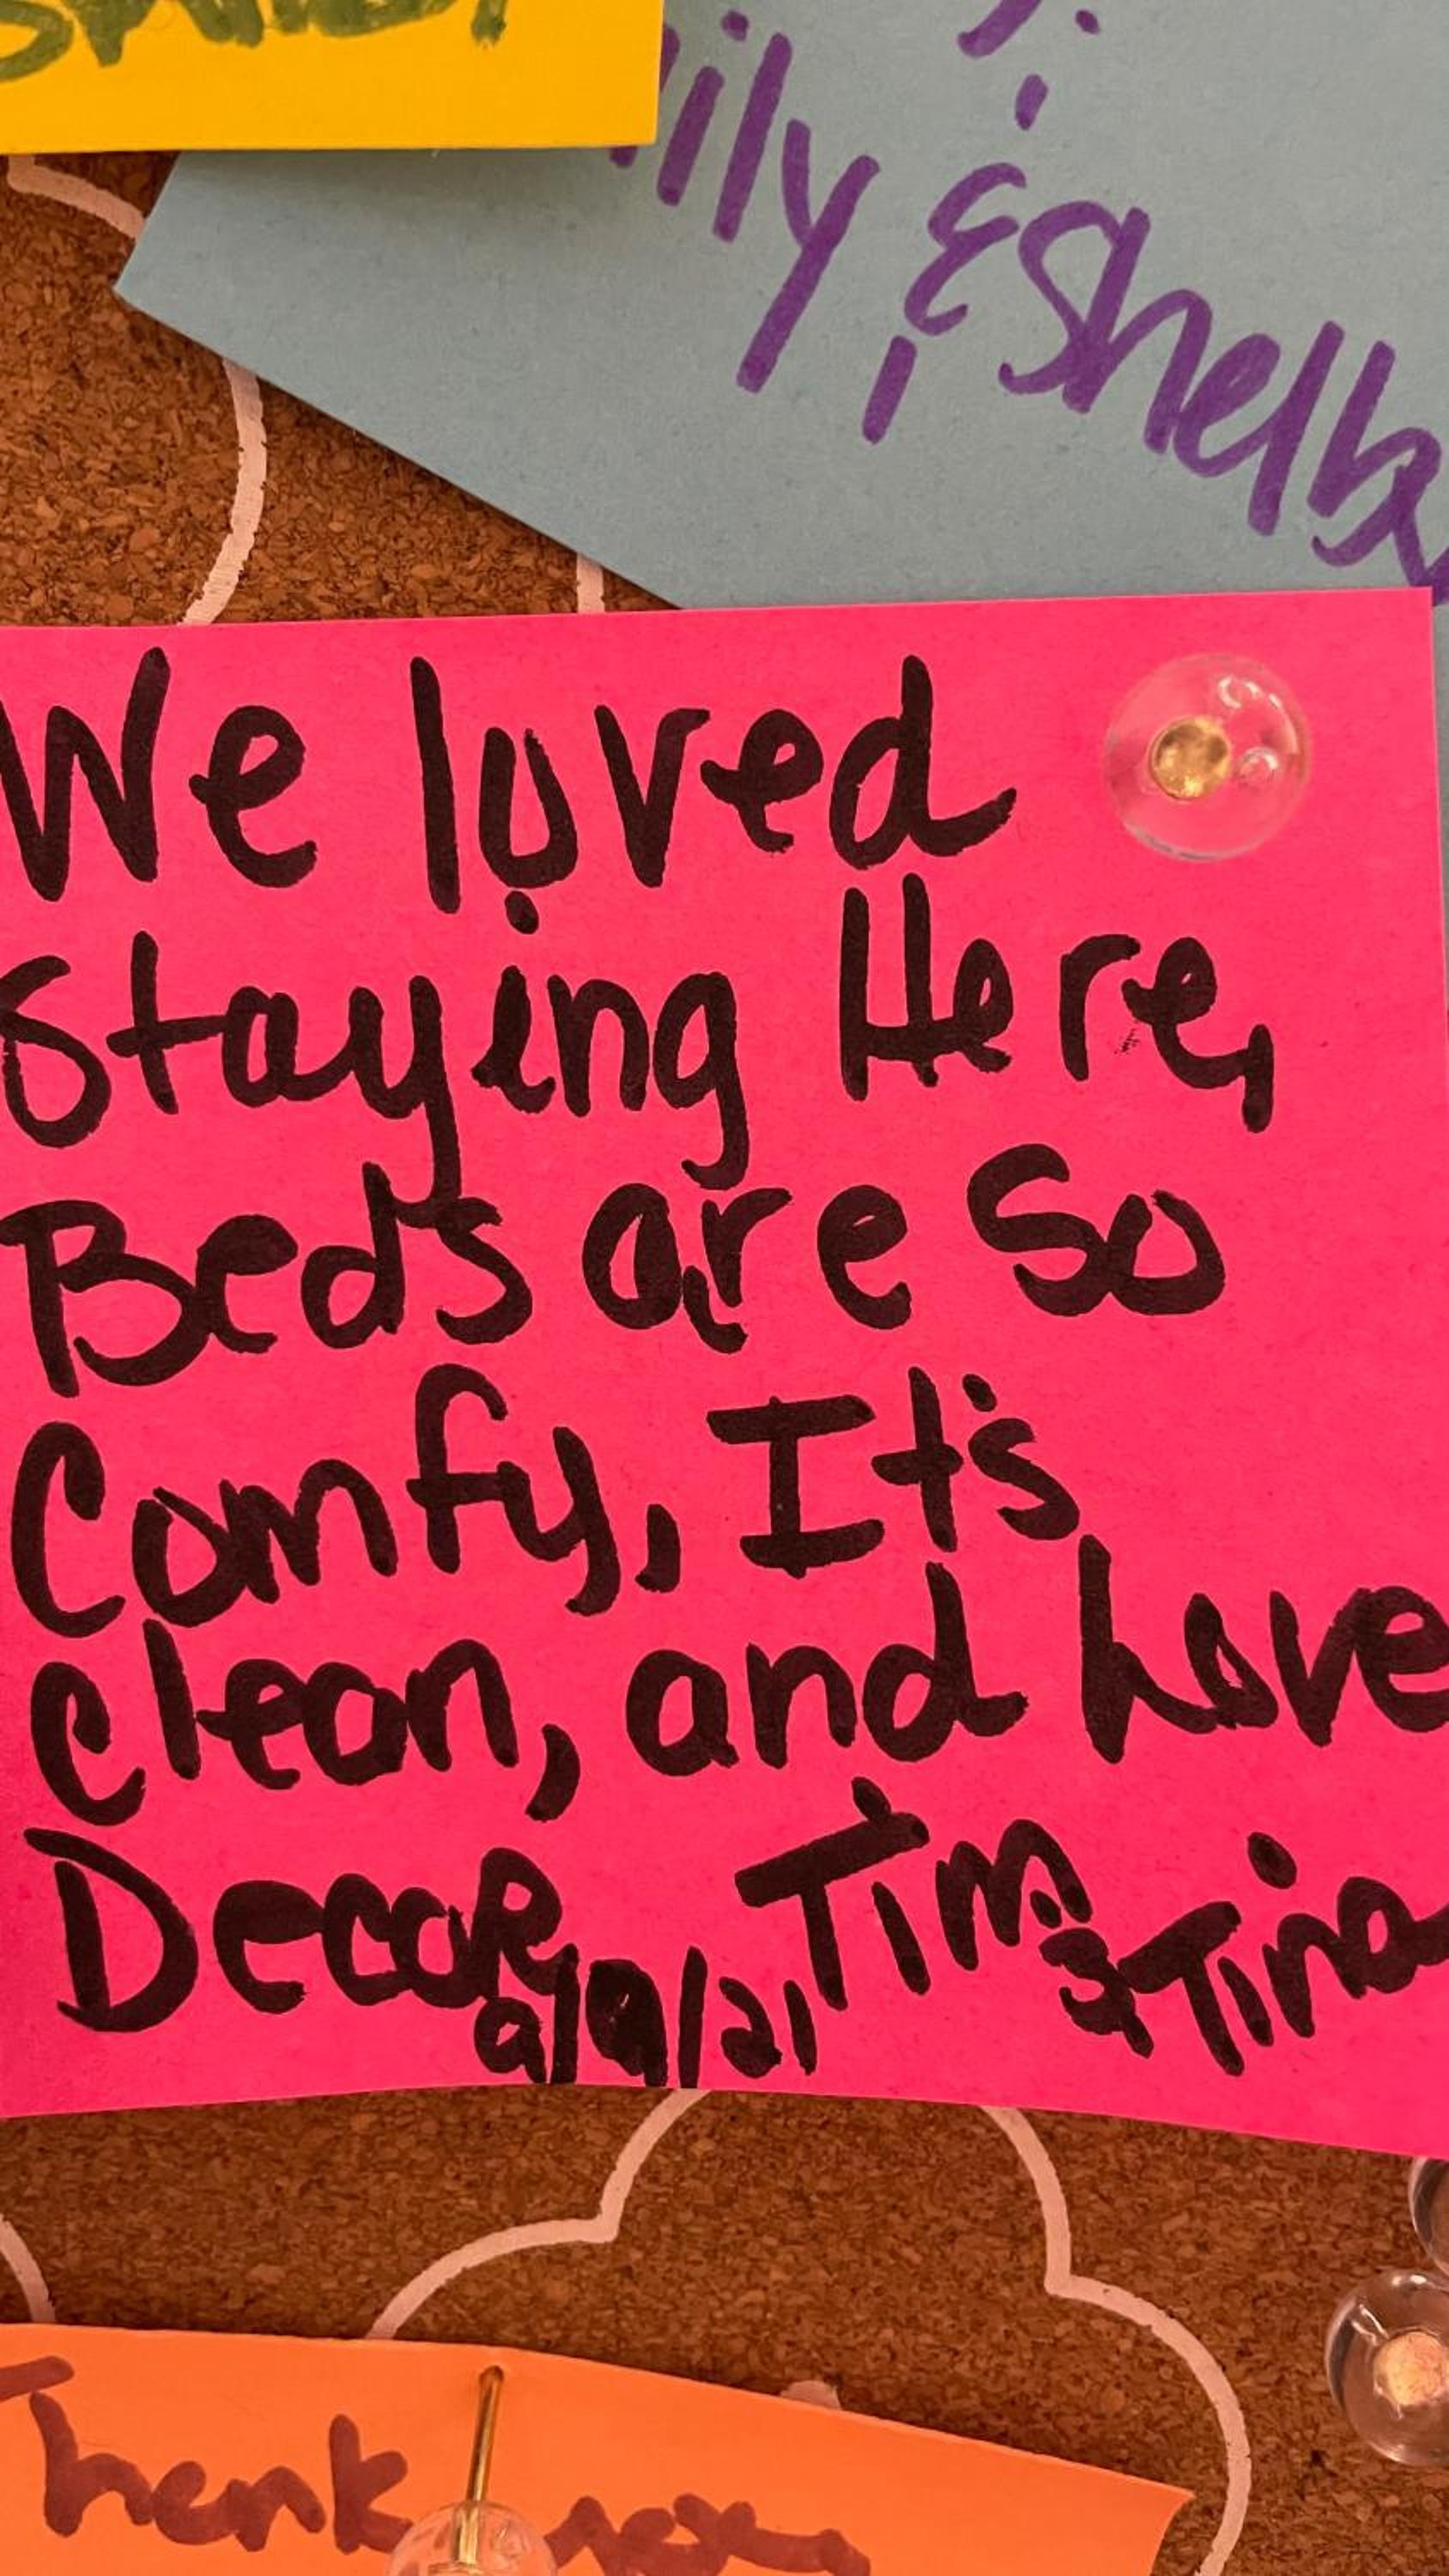 & Shelby
We loved
staying Here,
Beds are So
Comfy, It's
clean, and Love
Decor
Tim & Tina
9/9/21
Thank you